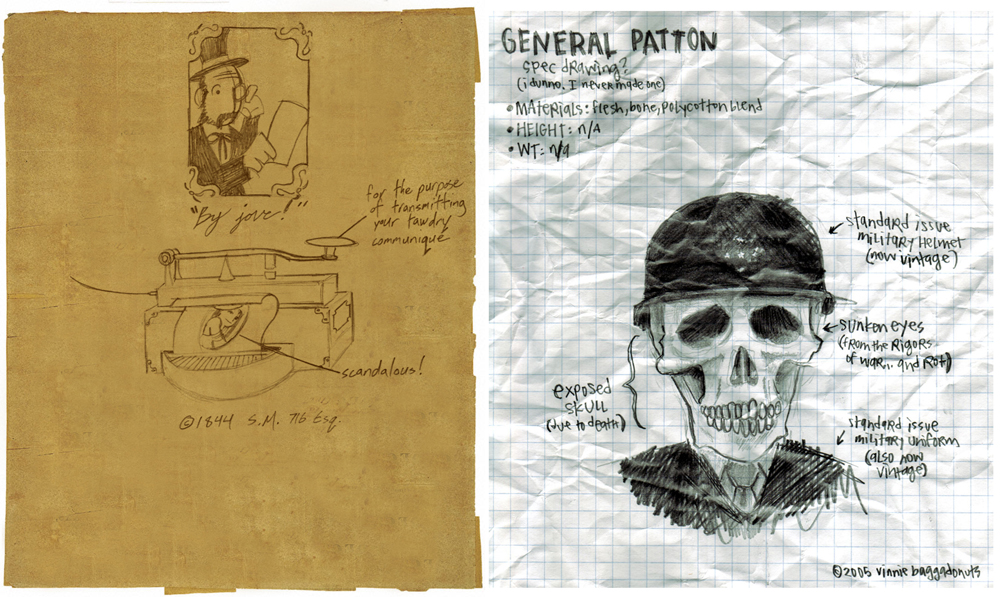 "By jove!"
for the purpose
of transmitting
your tawdry
communiqué
scandalous!
©1844 S.M. Esq.
GENERAL PATTON
spec drawing?
(i dunno. I never made one)
• Materials: flesh, bone, polycotton blend
• HEIGHT: n/A
• WT: n/a
standard issue
military Helmet
(now vintage)
sunken eyes
(from the Rigors
of war... and Rot)
exposed
SKULL
(due to death)
standard issue
military uniform
(also now
vintage)
©2005 vinnie baggadonuts